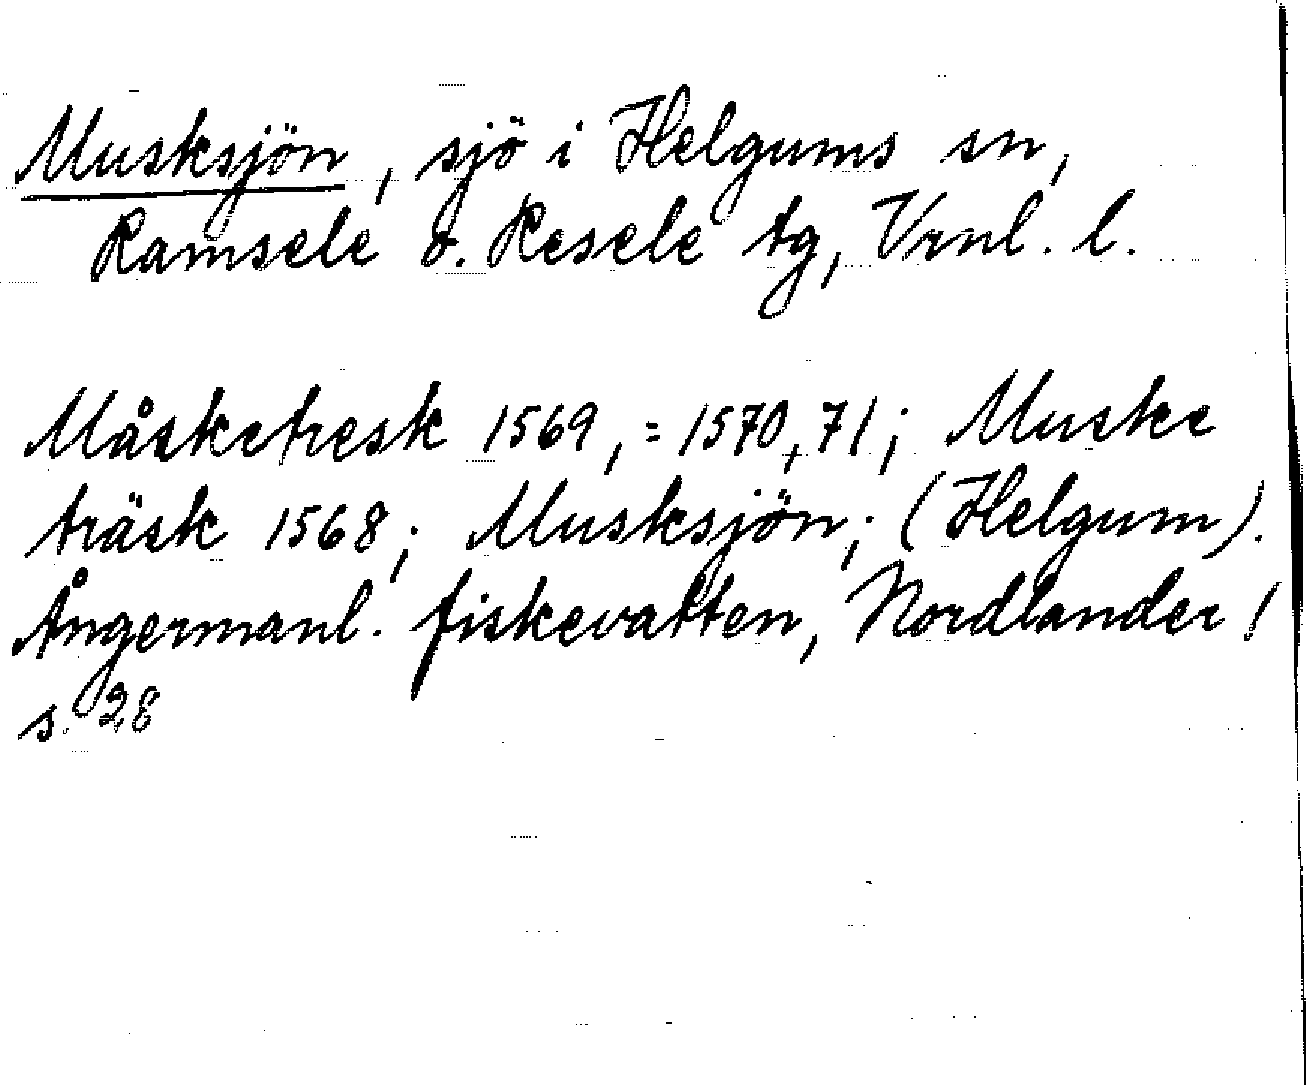 Musksjön, sjö i Helgums sn,
Ramsele o. Resele tg, Vrnl. l.
Måsketresk 1569, = 1570, 71; Muske
träsk 1568; Musksjön; (Helgum).
Ångermanl. fiskevatten, Nordlander!
s. 28